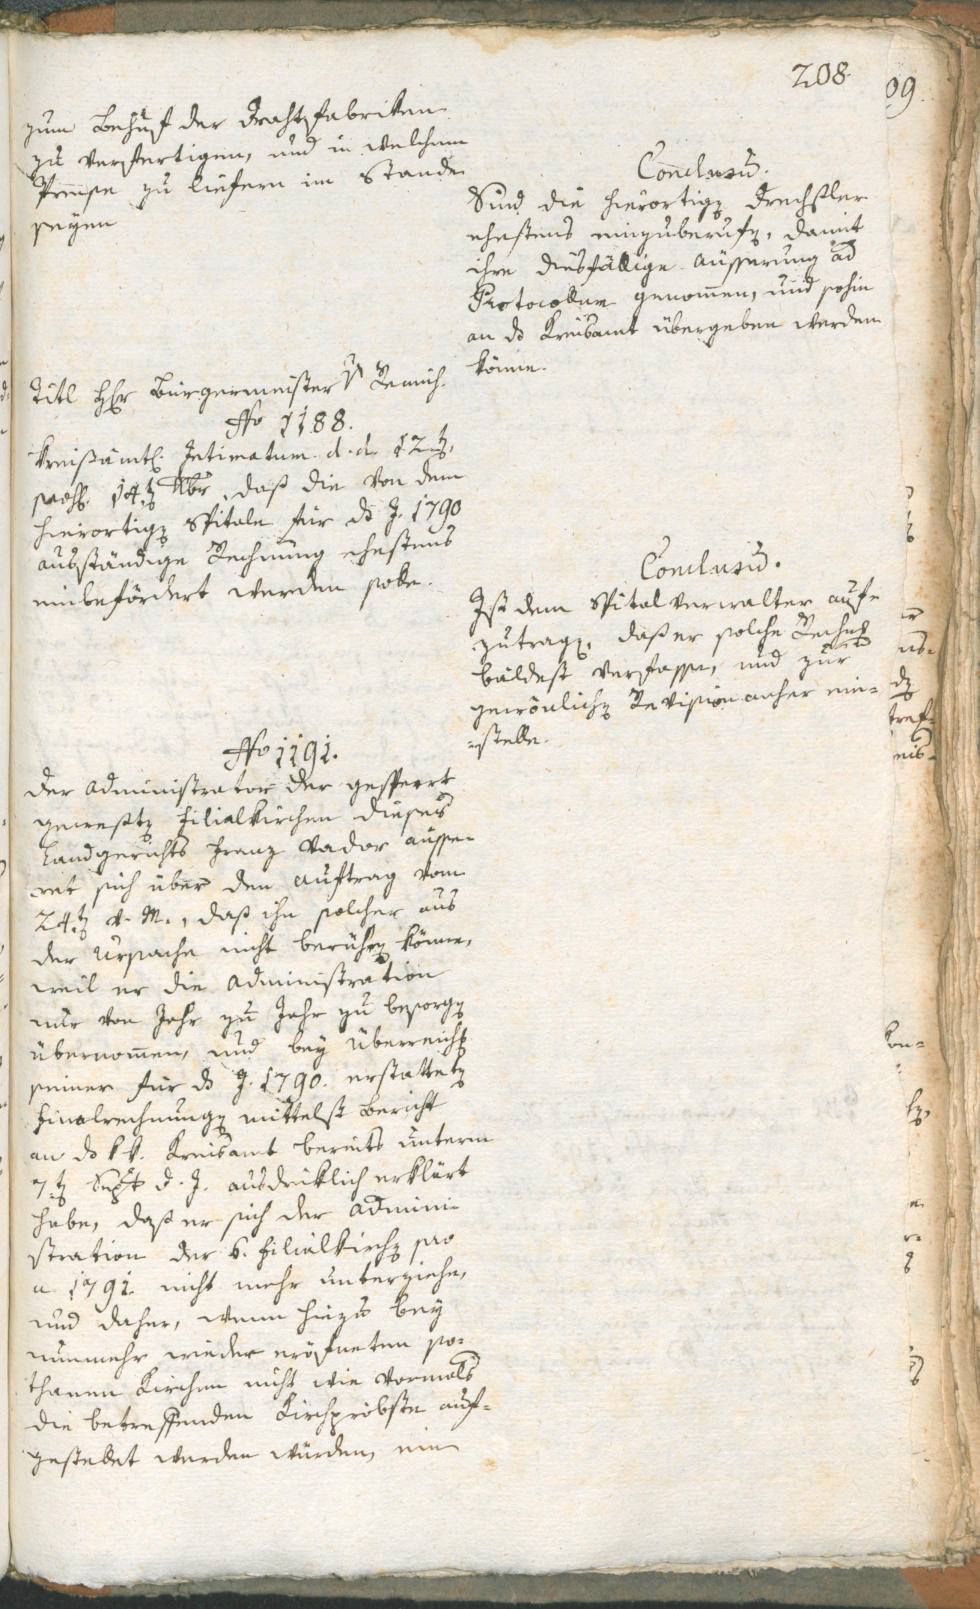 208
zum Behuf der Drachtfabriken
zu verfertigen, und in welchem
Preise zu liefern im Stande
seyen
Conclusū.
Sind die hierortigen Drechsler
ehestens einzuberufen, damit
ihre diesfällige Äusserung ad
Protocollum genom̄en, und sohin
an ds Kreisamt übergeben werden
könne.
Titl Hr Bürgermeister v
No 1188.
Kreisämtl. Intimatum d. d. 12ten,
praes. 14ten 9br, daß die von dem
hierortigen Spitale für ds J. 1790
ausständige Rechnung ehestens
einbefördert werden solle.
Conclusū.
Ist dem Spitalverwalter auf-
zutragen, daß er solche Rechnung
bäldest verfasse, und zur
gewönlichen Revision anher ein-
stelle.
No 1191.
Der Administrator der gesperrt
gewesten Filialkirchen dieses
Landgerichts Franz Vador äusse-
ret sich über den Auftrag vom
24ten v. M., daß ihn solcher aus
der Ursache nicht berühren könne,
weil er die Administration
nur von Jahr zu Jahr zu besorgen
übernom̄en, und bey Überreichung
seiner für ds J. 1790. erstatteten
Finalrechnungen mittelst Bericht
an ds kk. Kreisamt bereits unterm
7ten Sept d. J. ausdrüklich erklärt
habe, daß er sich der Admini-
stration der 6. Filialkirchen pro
a. 1791. nicht mehr unterziehe,
und daher, wenn hiezu bey
nunmehr wieder eröfneten so-
thanen Kirchen nicht wie vormals
die betreffenden Kirchpröbste auf-
gestellet werden würden, ein